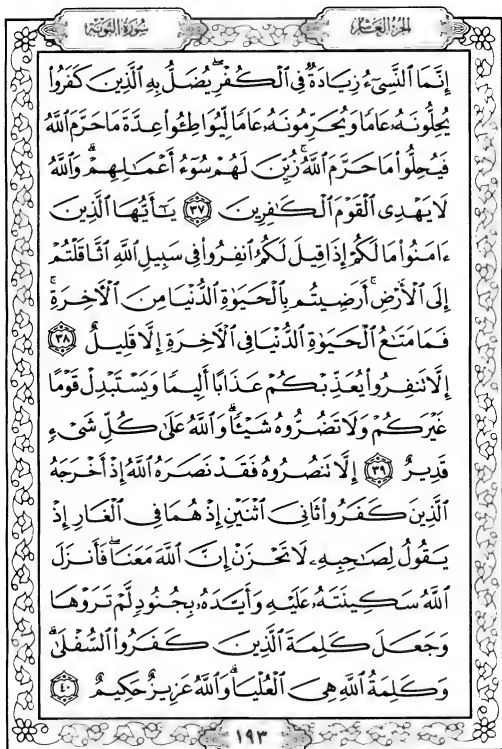 الجزء العاشر
سورة التوبة
إِنَّمَا ٱلنَّسِيٓءُ زِيَادَةٌ فِي ٱلۡكُفۡرِۖ يُضَلُّ بِهِ ٱلَّذِينَ كَفَرُواْ
يُحِلُّونَهُۥ عَامٗا وَيُحَرِّمُونَهُۥ عَامٗا لِّيُوَاطِـُٔواْ عِدَّةَ مَا حَرَّمَ ٱللَّهُ
فَيُحِلُّواْ مَا حَرَّمَ ٱللَّهُۚ زُيِّنَ لَهُمۡ سُوٓءُ أَعۡمَٰلِهِمۡۗ وَٱللَّهُ
لَا يَهۡدِي ٱلۡقَوۡمَ ٱلۡكَٰفِرِينَ ٣٧ يَٰٓأَيُّهَا ٱلَّذِينَ
ءَامَنُواْ مَا لَكُمۡ إِذَا قِيلَ لَكُمُ ٱنفِرُواْ فِي سَبِيلِ ٱللَّهِ ٱثَّاقَلۡتُمۡ
إِلَى ٱلۡأَرۡضِۚ أَرَضِيتُم بِٱلۡحَيَوٰةِ ٱلدُّنۡيَا مِنَ ٱلۡأٓخِرَةِۚ
فَمَا مَتَٰعُ ٱلۡحَيَوٰةِ ٱلدُّنۡيَا فِي ٱلۡأٓخِرَةِ إِلَّا قَلِيلٌ ٣٨
إِلَّا تَنفِرُواْ يُعَذِّبۡكُمۡ عَذَابًا أَلِيمٗا وَيَسۡتَبۡدِلۡ قَوۡمًا
غَيۡرَكُمۡ وَلَا تَضُرُّوهُ شَيۡـٔٗاۗ وَٱللَّهُ عَلَىٰ كُلِّ شَيۡءٖ
قَدِيرٌ ٣٩ إِلَّا تَنصُرُوهُ فَقَدۡ نَصَرَهُ ٱللَّهُ إِذۡ أَخۡرَجَهُ
ٱلَّذِينَ كَفَرُواْ ثَانِيَ ٱثۡنَيۡنِ إِذۡ هُمَا فِي ٱلۡغَارِ إِذۡ
يَقُولُ لِصَٰحِبِهِۦ لَا تَحۡزَنۡ إِنَّ ٱللَّهَ مَعَنَاۖ فَأَنزَلَ
ٱللَّهُ سَكِينَتَهُۥ عَلَيۡهِ وَأَيَّدَهُۥ بِجُنُودٖ لَّمۡ تَرَوۡهَا
وَجَعَلَ كَلِمَةَ ٱلَّذِينَ كَفَرُواْ ٱلسُّفۡلَىٰۗ
وَكَلِمَةُ ٱللَّهِ هِيَ ٱلۡعُلۡيَاۗ وَٱللَّهُ عَزِيزٌ حَكِيمٌ ٤٠
١٩٣